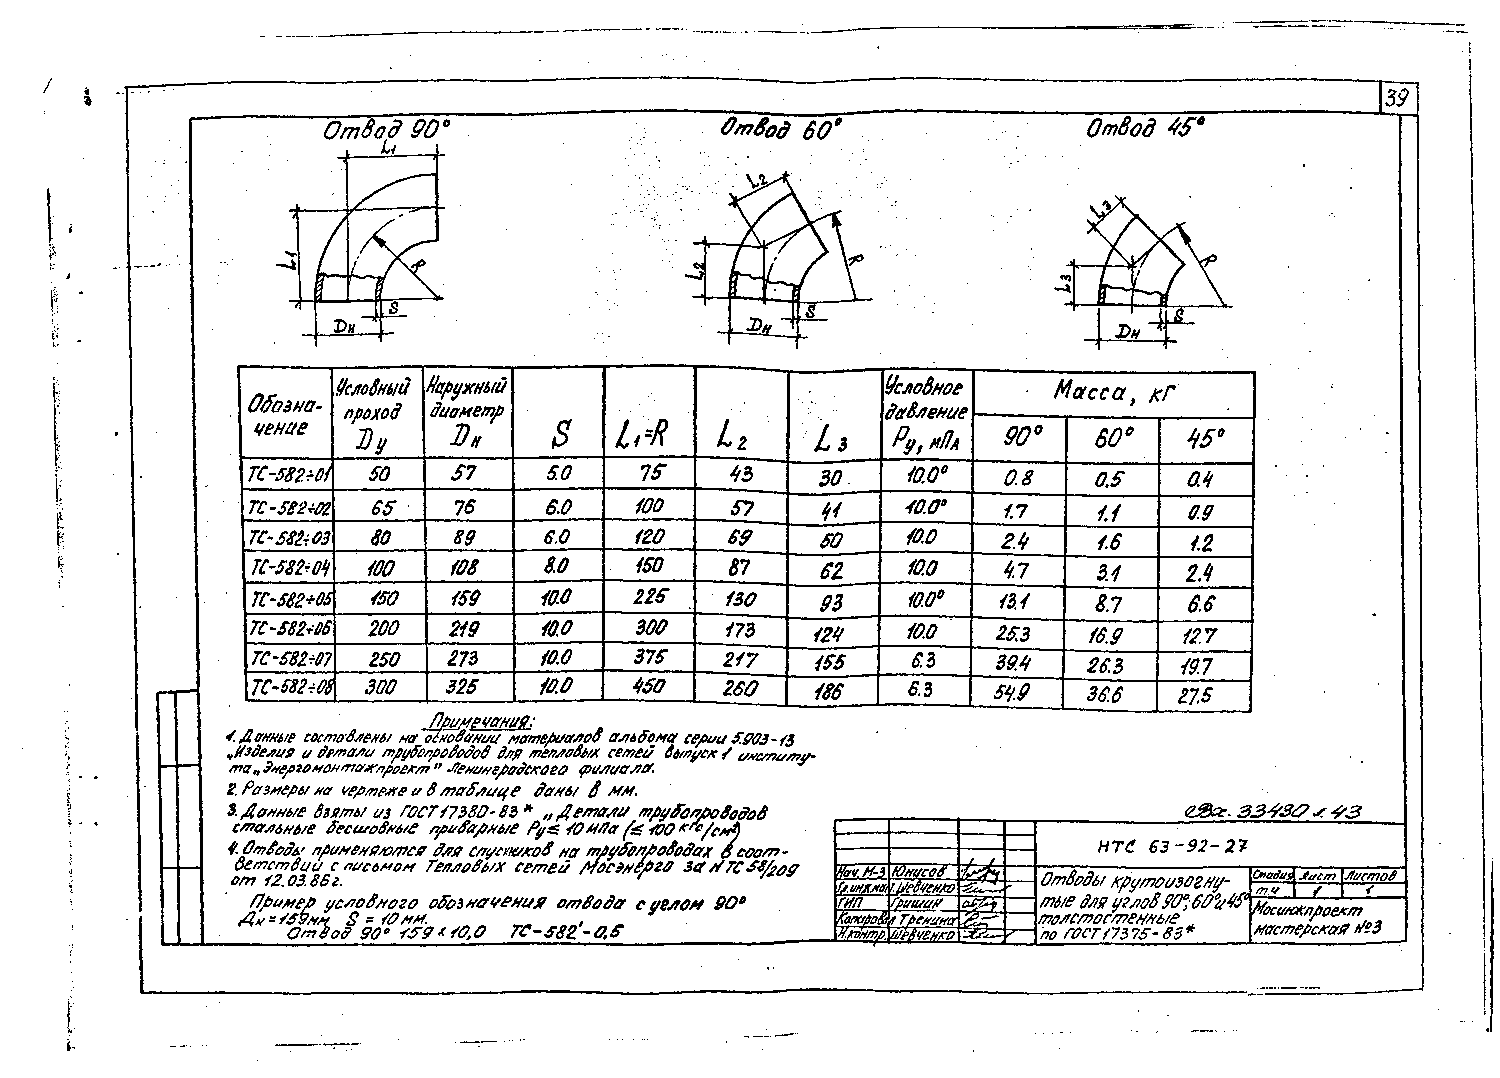 39
Отвод 90°
Отвод 60°
Отвод 45°
L1
L1
R
S
Dн
L2
L2
R
S
Dн
L3
L3
R
S
Dн
Обозна-
чение
Условный
проход
Dу
Наружный
диаметр
Dн
S
L1=R
L2
L3
Условное
давление
Ру, мПА
Масса, кг
90°
60°
45°
ТС-582÷01 50 57 5.0 75 43 30 10.0° 0.8 0.5 0.4
ТС-582÷02 65 76 6.0 100 57 41 10.0° 1.7 1.1 0.9
ТС-582÷03 80 89 6.0 120 69 50 10.0 2.4 1.6 1.2
ТС-582÷04 100 108 8.0 150 87 62 10.0 4.7 3.1 2.4
ТС-582÷05 150 159 10.0 225 130 93 10.0° 13.1 8.7 6.6
ТС-582÷06 200 219 10.0 300 173 124 10.0 25.3 16.9 12.7
ТС-582÷07 250 273 10.0 375 217 155 6.3 39.4 26.3 19.7
ТС-582÷08 300 325 10.0 450 260 186 6.3 54.9 36.6 27.5
Примечания:
1. Данные составлены на основании материалов альбома серии 5.903-13
„Изделия и детали трубопроводов для тепловых сетей выпуск 1 институ-
та „Энергомонтажпроект" Ленинградского филиала.
2. Размеры на чертеже и в таблице даны в мм.
3. Данные взяты из ГОСТ 17380-83* „Детали трубопроводов
стальные бесшовные приварные Ру≤10мПа (≤100 кгс/см²)
4. Отводы применяются для спускников на трубопроводах в соот-
ветствии с письмом Тепловых сетей Мосэнерго за N ТС 58/209
от 12.03.86г.
Пример условного обозначения отвода с углом 90°
Дн=159мм S=10мм.
Отвод 90° 159×10,0 ТС-582-0,5
33430 л. 43
НТС 63-92-27
Нач. М-3 Юнусов
Гр.инж.мон. Шевченко
ГИП Гришин
Копировал Тренина
Н.контр. Шевченко
Отводы крутоизогну-
тые для углов 90°,60°и45°
толстостенные
по ГОСТ 17375-83*
Стадия Лист Листов
т.ч 1 1
Мосинжпроект
мастерская №3